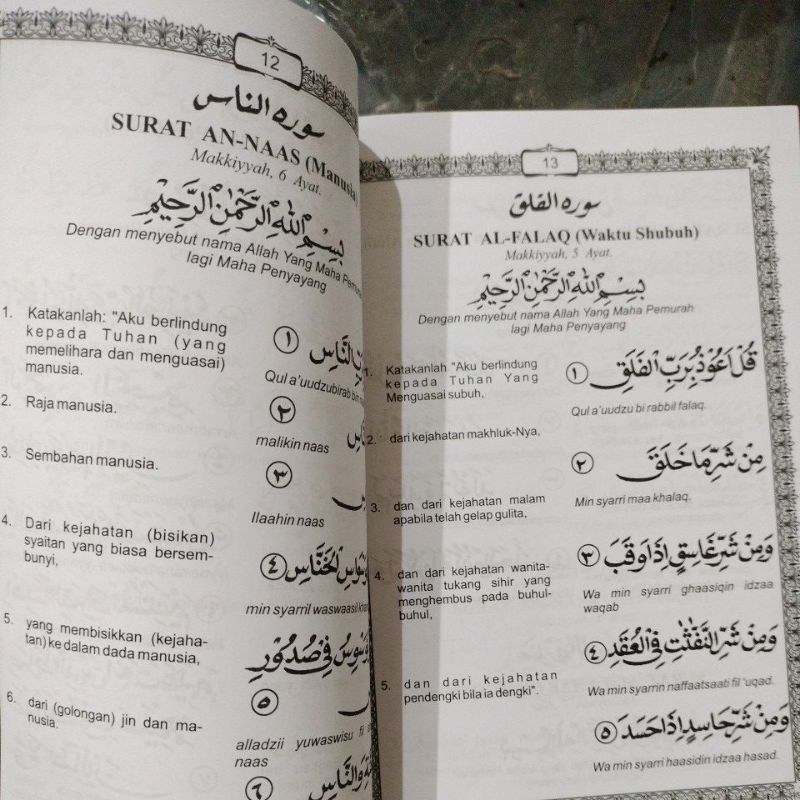 12
سورة الناس
SURAT AN-NAAS (Manusia)
Makkiyyah, 6 Ayat.
بِسْمِ ٱللَّهِ ٱلرَّحْمَٰنِ ٱلرَّحِيمِ
Dengan menyebut nama Allah Yang Maha Pemurah
lagi Maha Penyayang
1. Katakanlah: "Aku berlindung
kepada Tuhan (yang
memelihara dan menguasai)
manusia.
١
النَّاسِ
Qul a'uudzubirab bin
2. Raja manusia.
٢
malikin naas
3. Sembahan manusia.
٣
Ilaahin naas
4. Dari kejahatan (bisikan)
syaitan yang biasa bersem-
bunyi,
وَسْوَاسِ الْخَنَّاسِ ٤
min syarril waswaasil
5. yang membisikkan (kejaha-
tan) ke dalam dada manusia,
يُوَسْوِسُ فِي صُدُورِ
٥
alladzii yuwaswisu fi
naas
6. dari (golongan) jin dan ma-
nusia.
وَالنَّاسِ
٦
13
سورة الفلق
SURAT AL-FALAQ (Waktu Shubuh)
Makkiyyah, 5 Ayat.
بِسْمِ ٱللَّهِ ٱلرَّحْمَٰنِ ٱلرَّحِيمِ
Dengan menyebut nama Allah Yang Maha Pemurah
lagi Maha Penyayang
1. Katakanlah "Aku berlindung
kepada Tuhan Yang
Menguasai subuh,
قُلْ اَعُوْذُ بِرَبِّ الْفَلَقِ ١
Qul a'uudzu bi rabbil falaq.
2. dari kejahatan makhluk-Nya,
مِنْ شَرِّ مَا خَلَقَ ٢
Min syarri maa khalaq.
3. dan dari kejahatan malam
apabila telah gelap gulita,
وَمِنْ شَرِّ غَاسِقٍ اِذَا وَقَبَ ٣
Wa min syarri ghaasiqin idzaa
waqab
4. dan dari kejahatan wanita-
wanita tukang sihir yang
menghembus pada buhul-
buhul,
وَمِنْ شَرِّ النَّفّٰثٰتِ فِى الْعُقَدِ ٤
Wa min syarrin naffaatsaati fil 'uqad.
5. dan dari kejahatan
pendengki bila ia dengki".
وَمِنْ شَرِّ حَاسِدٍ اِذَا حَسَدَ ٥
Wa min syarri haasidin idzaa hasad.